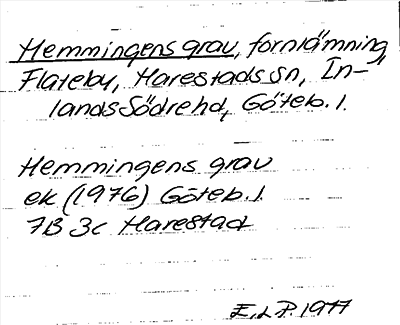 Hemmingens grav, fornlämning,
Flateby, Harestads sn, In-
lands Södre hd, Göteb. l.
Hemmingens grav
ek (1976) Göteb. l.
7B 3c Harestad
E.L.P. 1977